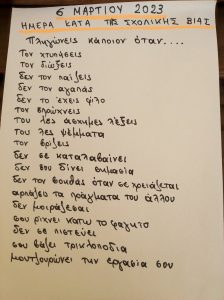 6 ΜΑΡΤΙΟΥ 2023
ΗΜΕΡΑ ΚΑΤΑ ΤΗΣ ΣΧΟΛΙΚΗΣ ΒΙΑΣ
Πληγώνεις κάποιον όταν....
Τον χτυπήσεις
Τον διώξεις
δεν τον παίζεις
δεν τον αγαπάς
δεν το έχεις φίλο
τον σπρώχνεις
του λες άσχημες λέξεις
του λες ψέμματα
τον βρίζεις
δεν σε καταλαβαίνει
δεν σου δίνει σημασία
δεν τον βοηθάς όταν σε χρειάζεται
αρπάζεις τα πράγματα του άλλου
δεν μοιράζεσαι
σου ρίχνει κάτω το φαγητό
δεν σε πιστεύει
σου βάζει τρικλοποδιά
μουτζουρώνει την εργασία σου